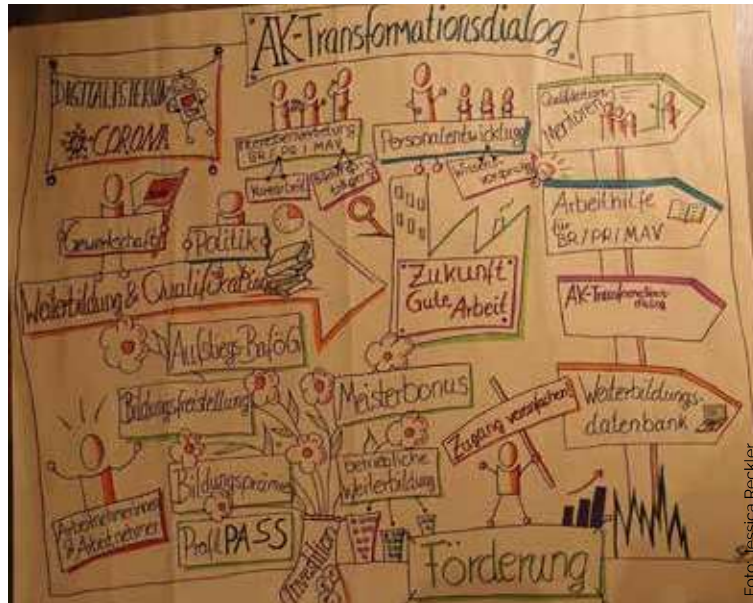 AK-Transformationsdialog
DIGITALISIERUNG
CORONA
Interessenvertretung
BR / PR / MAV
Kurzarbeit
Personalentwicklung
Wissens-
vorsprung
Qualifizierungs
Mentoren
Gewerkschaft
Politik
Arbeitshilfe
für
BR / PR / MAV
Weiterbildung & Qualifikation
Zukunft
Gute
Arbeit
AK-Transformations
dialog
Aufstiegs-BaföG
Bildungsfreistellung
Meisterbonus
Zugang vereinfachen!
Weiterbildungs-
datenbank
Bildungsprämie
betriebliche
Weiterbildung
Arbeitnehmerinnen
& Arbeitnehmer
Profil PASS
Investition
Förderung
Foto: Jessica Reckler